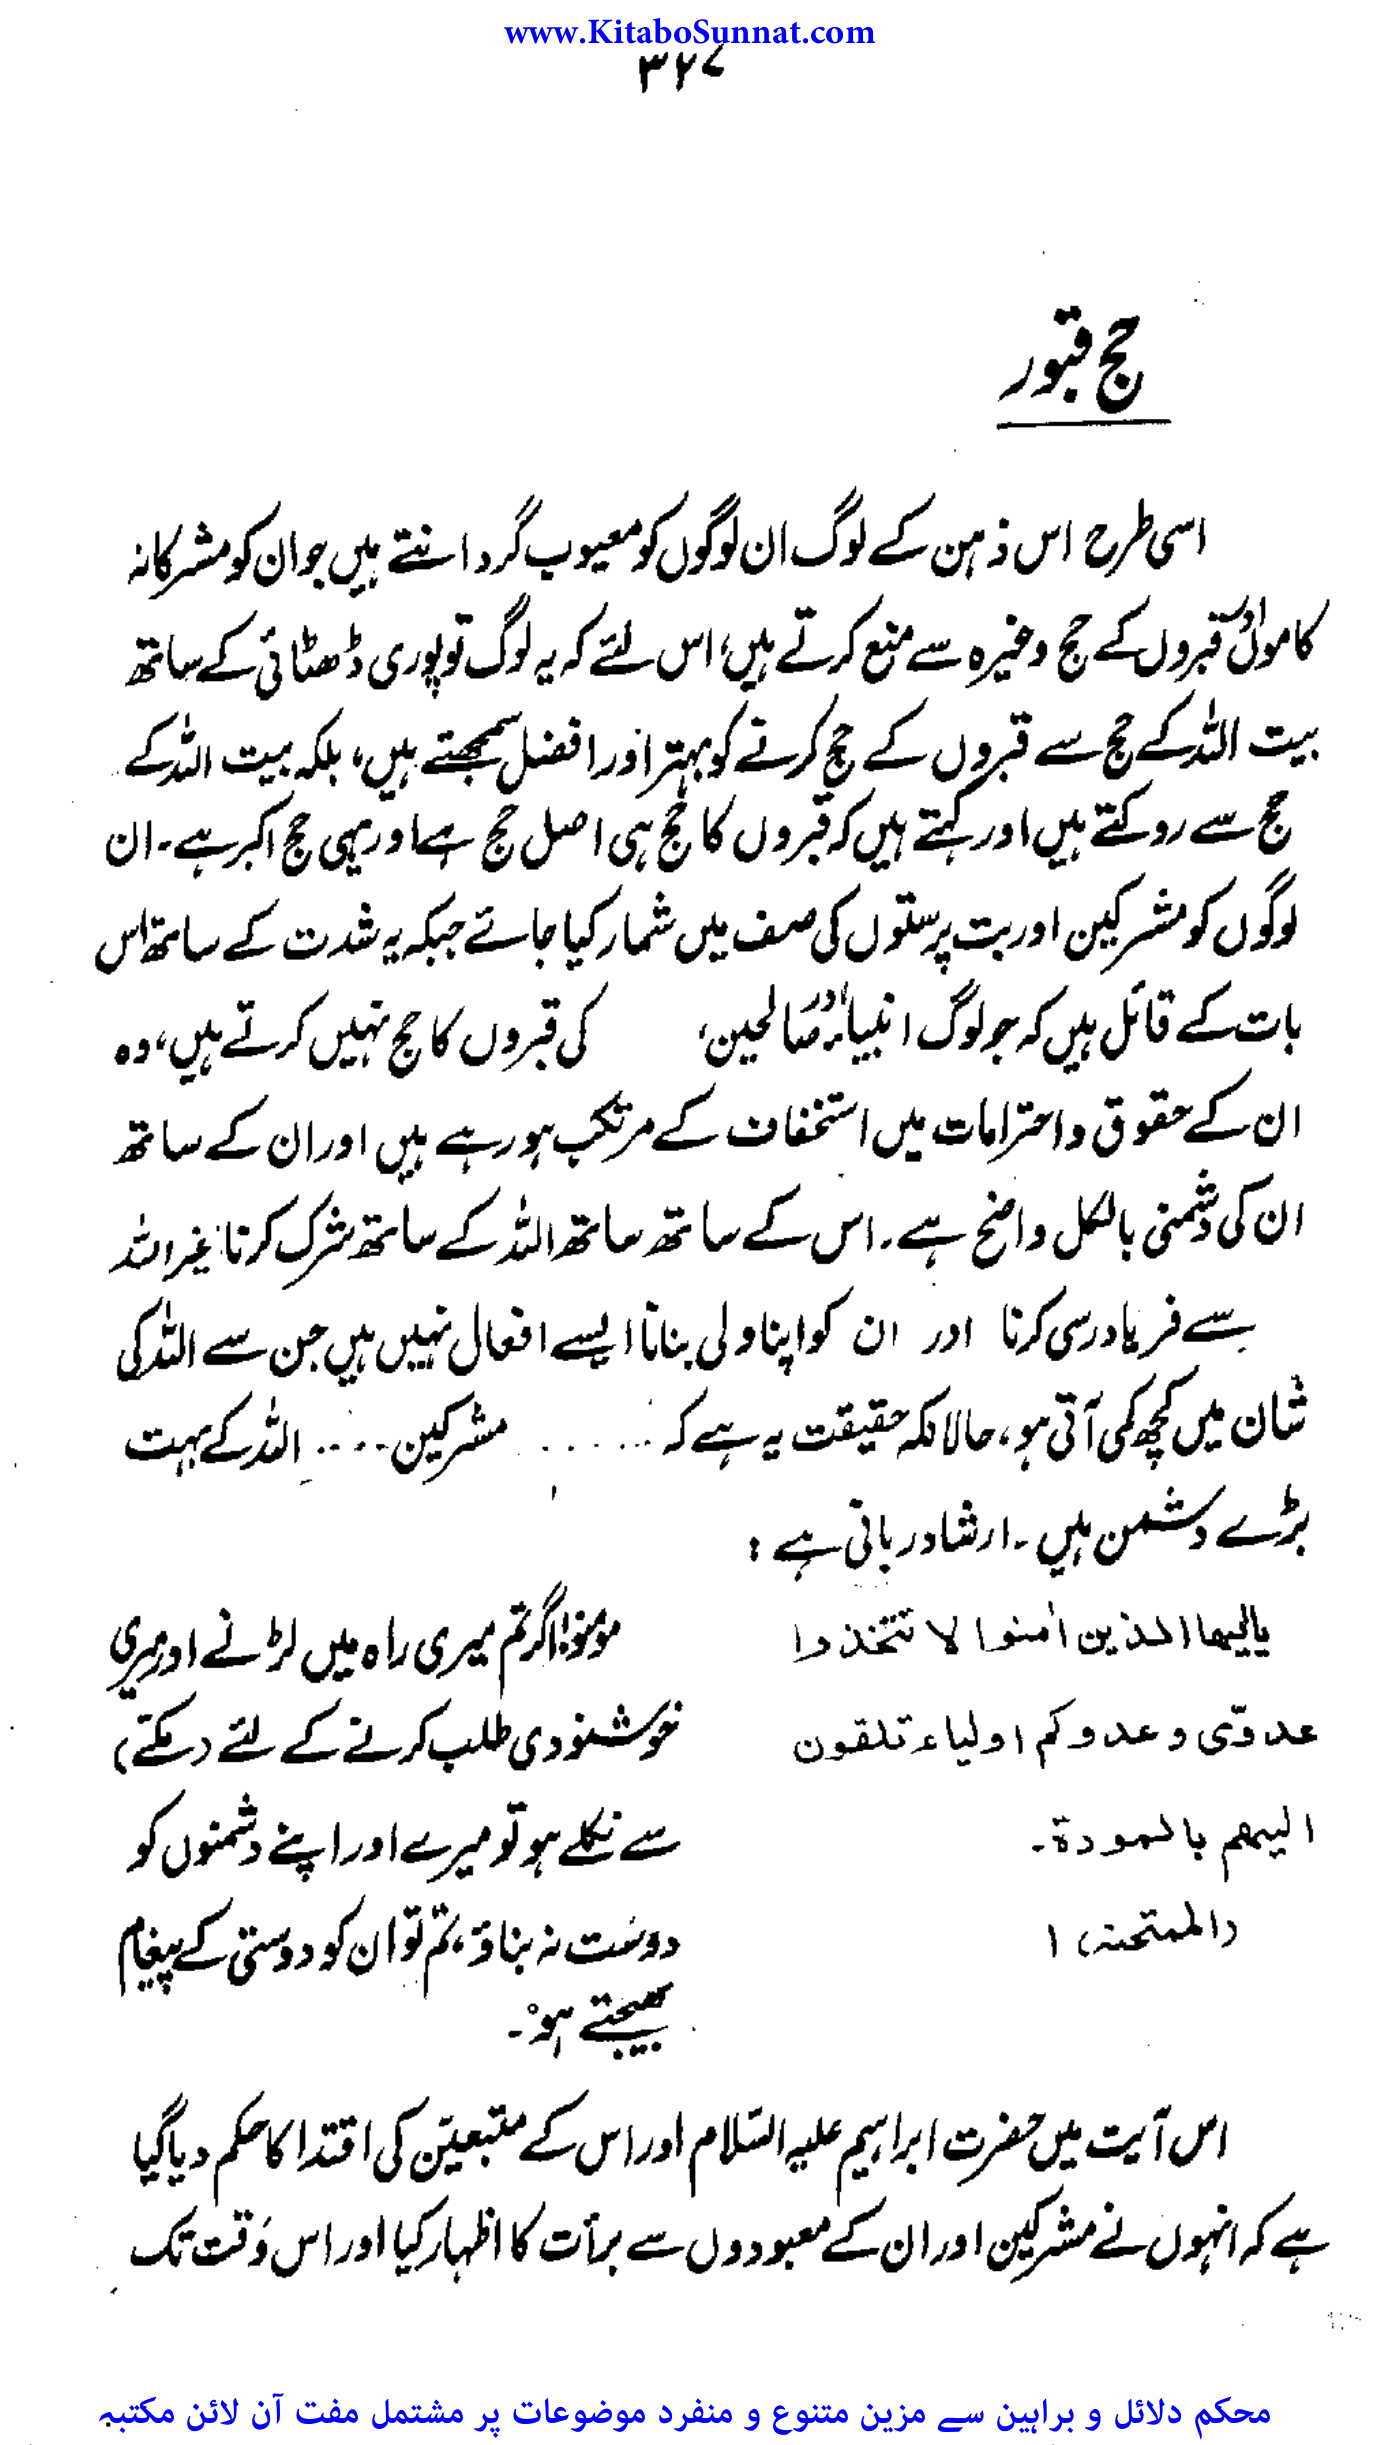 www.KitaboSunnat.com
۳۲۷
حج قبور
اسی طرح اس ذہن کے لوگ ان لوگوں کو معیوب گردانتے ہیں جو ان کو مشرکانہ
کاموں اور قبروں کے حج وغیرہ سے منع کرتے ہیں، اس لئے کہ یہ لوگ تو پوری ڈھٹائی کے ساتھ
بیت اللہ کے حج سے قبروں کے حج کرنے کو بہتر اور افضل سمجھتے ہیں، بلکہ بیت اللہ کے
حج سے روکتے ہیں اور کہتے ہیں کہ قبروں کا حج ہی اصل حج ہے اور یہی حج اکبر ہے۔ ان
لوگوں کو مشرکین اور بت پرستوں کی صف میں شمار کیا جائے جبکہ یہ شدت کے ساتھ اس
بات کے قائل ہیں کہ جو لوگ انبیاء اور صالحین، کی قبروں کا حج نہیں کرتے ہیں، وہ
ان کے حقوق و احترامات میں استخفاف کے مرتکب ہو رہے ہیں اور ان کے ساتھ
ان کی دشمنی بالکل واضح ہے۔ اس کے ساتھ ساتھ اللہ کے ساتھ شرک کرنا غیر اللہ
سے فریادرسی کرنا اور ان کو اپنا ولی بنانا ایسے افعال نہیں ہیں جن سے اللہ کی
شان میں کچھ کمی آتی ہو، حالانکہ حقیقت یہ ہے کہ ...... مشرکین .... اللہ کے بہت
بڑے دشمن ہیں۔ ارشاد ربانی ہے :
یاایھا الذین اٰمنوا لا تتخذوا
عدوّی و عدوکم اولیاء تلقون
الیھم بالمودة۔
(الممتحنہ) ۱
مومنو! اگر تم میری راہ میں لڑنے اور میری
خوشنودی طلب کرنے کے لئے (مکے)
سے نکلے ہو تو میرے اور اپنے دشمنوں کو
دوست نہ بناؤ، تم تو ان کو دوستی کے پیغام
بھیجتے ہو۔
اس آیت میں حضرت ابراہیم علیہ السّلام اور اس کے متبعین کی اقتدا کا حکم دیا گیا
ہے کہ انہوں نے مشرکین اور ان کے معبودوں سے برأت کا اظہار کیا اور اس وقت تک
محکم دلائل و براہین سے مزین متنوع و منفرد موضوعات پر مشتمل مفت آن لائن مکتبہ